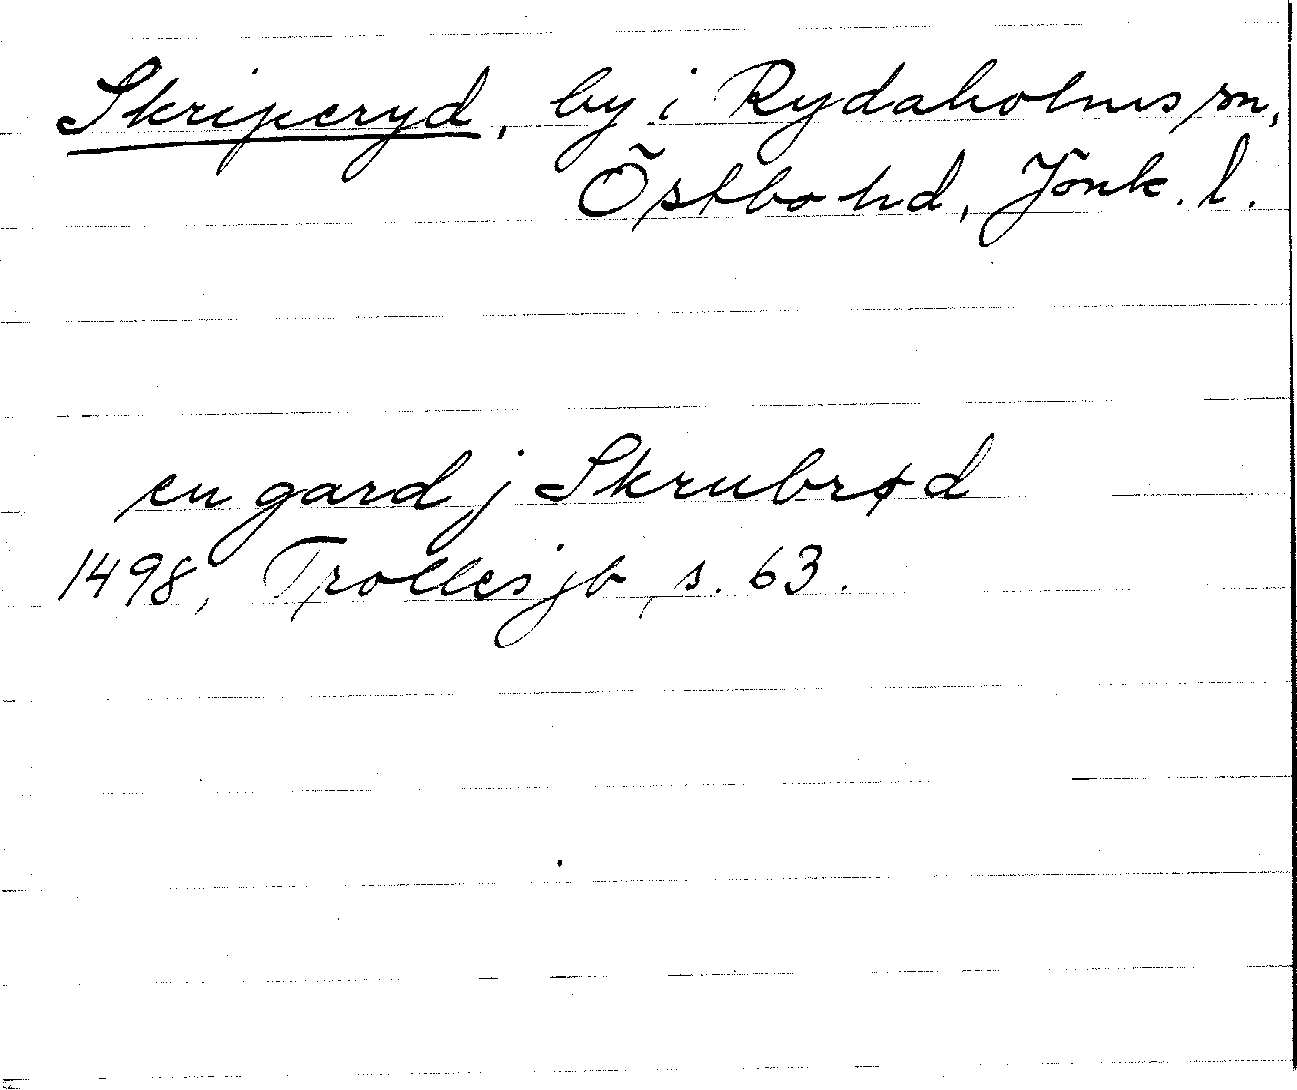 Skriperyd, by i Rydaholms sn,
Östbo hd, Jönk. l.
en gard j Skrubrød
1498, Trolles jb, s. 63.